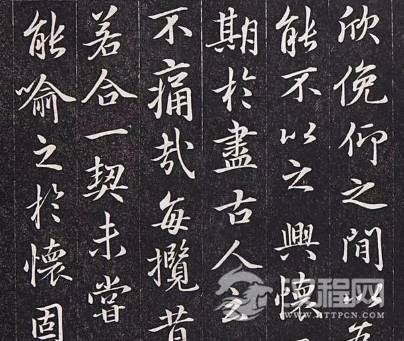 欣俛仰之間以
能不以之興懷
期於盡古人云
不痛哉每攬昔
若合一契未嘗
能喻之於懷固
汉程网
WWW.HTTPCN.COM